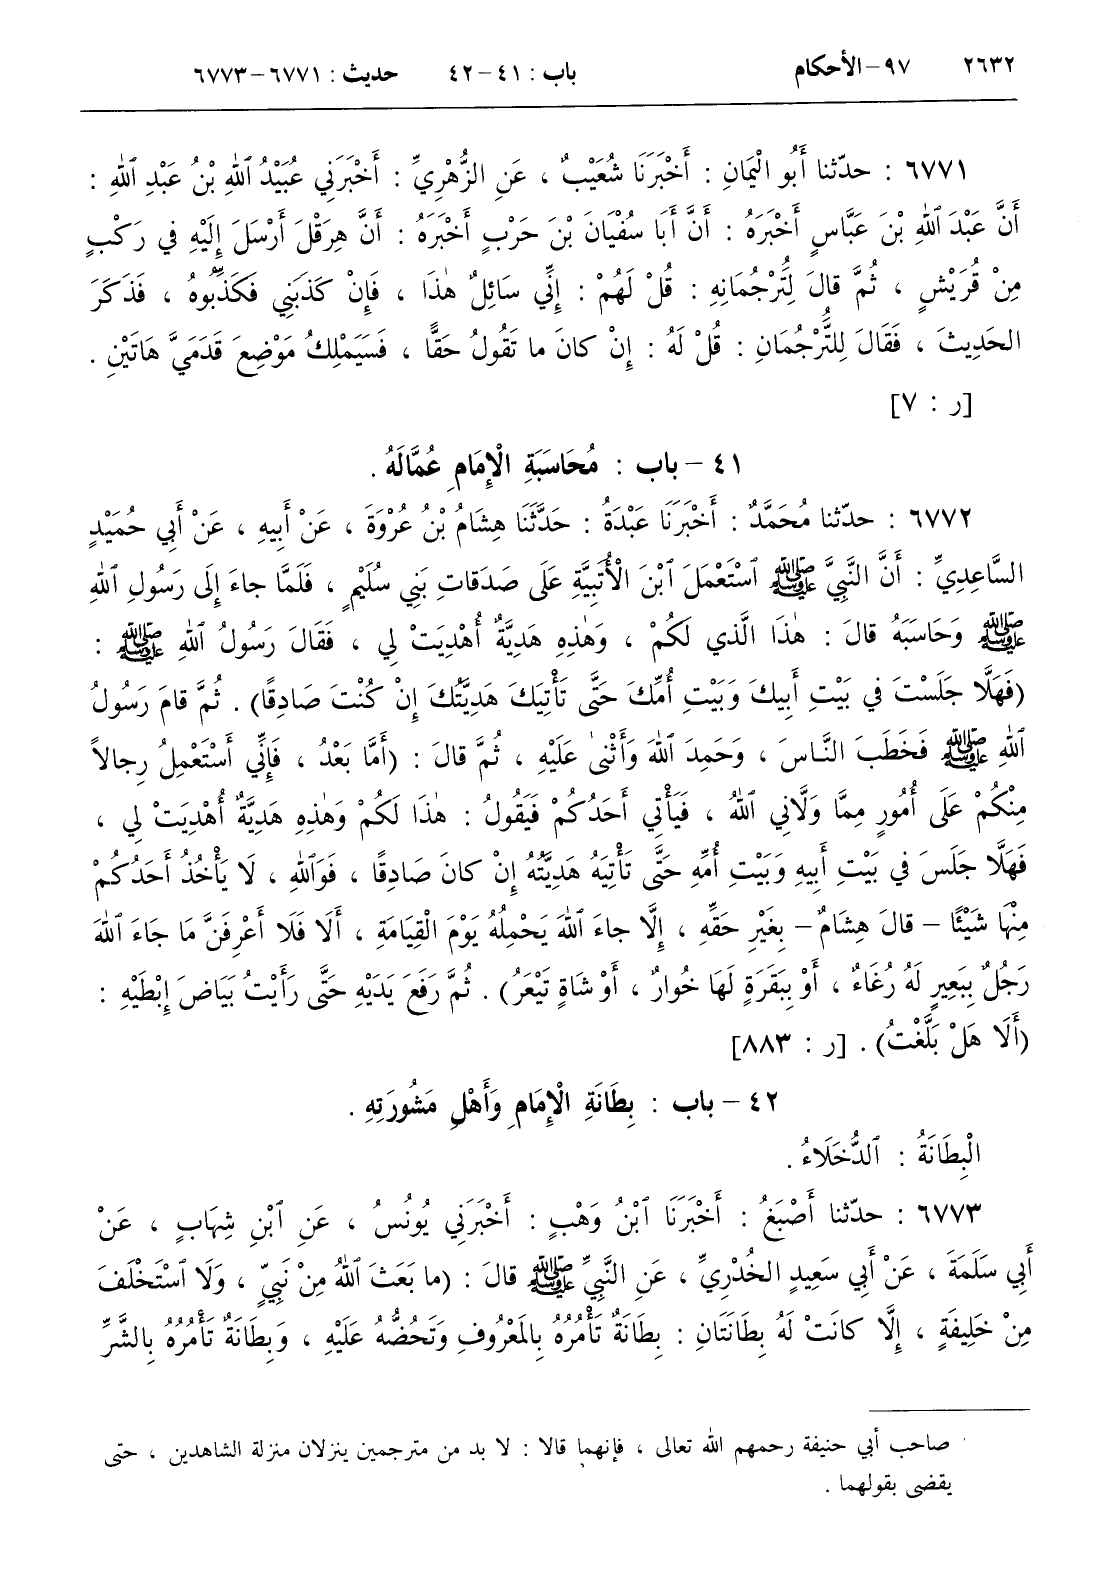 ٢٦٣٢ ٩٧-الأحكام باب : ٤١-٤٢ حديث : ٦٧٧١-٦٧٧٣
٦٧٧١ : حدّثنا أَبُو الْيَمَانِ : أَخْبَرَنَا شُعَيْبٌ ، عَنِ الزُّهْرِيِّ : أَخْبَرَنِي عُبَيْدُ ٱللهِ بْنُ عَبْدِ ٱللهِ :
أَنَّ عَبْدَ ٱللهِ بْنَ عَبَّاسٍ أَخْبَرَهُ : أَنَّ أَبَا سُفْيَانَ بْنَ حَرْبٍ أَخْبَرَهُ : أَنَّ هِرَقْلَ أَرْسَلَ إِلَيْهِ في رَكْبٍ
مِنْ قُرَيْشٍ ، ثُمَّ قالَ لِتَرْجُمَانِهِ : قُلْ لَهُمْ : إِنِّي سَائِلٌ هٰذَا ، فَإِنْ كَذَبَنِي فَكَذِّبُوهُ ، فَذَكَرَ
الحَدِيثَ ، فَقَالَ لِلتَّرْجُمَانِ : قُلْ لَهُ : إِنْ كانَ ما تَقُولُ حَقًّا ، فَسَيَمْلِكُ مَوْضِعَ قَدَمَيَّ هَاتَيْنِ .
[ر : ٧]
٤١ – باب : مُحَاسَبَةِ الْإِمَامِ عُمَّالَهُ .
٦٧٧٢ : حدّثنا مُحَمَّدٌ : أَخْبَرَنَا عَبْدَةُ : حَدَّثَنَا هِشَامُ بْنُ عُرْوَةَ ، عَنْ أَبِيهِ ، عَنْ أَبِي حُمَيْدٍ
السَّاعِدِيِّ : أَنَّ النَّبِيَّ ﷺ ٱسْتَعْمَلَ ٱبْنَ الْأُتَبِيَّةِ عَلَى صَدَقاتِ بَنِي سُلَيْمٍ ، فَلَمَّا جاءَ إِلَى رَسُولِ ٱللهِ
ﷺ وَحَاسَبَهُ قالَ : هٰذَا الَّذي لَكُمْ ، وَهٰذِهِ هَدِيَّةٌ أُهْدِيَتْ لِي ، فَقَالَ رَسُولُ ٱللهِ ﷺ :
(فَهَلَّا جَلَسْتَ في بَيْتِ أَبِيكَ وَبَيْتِ أُمِّكَ حَتَّى تَأْتِيَكَ هَدِيَّتُكَ إِنْ كُنْتَ صَادِقًا) . ثُمَّ قامَ رَسُولُ
ٱللهِ ﷺ فَخَطَبَ النَّاسَ ، وَحَمِدَ ٱللهَ وَأَثْنىٰ عَلَيْهِ ، ثُمَّ قالَ : (أَمَّا بَعْدُ ، فَإِنِّي أَسْتَعْمِلُ رِجالاً
مِنْكُمْ عَلَى أُمُورٍ مِمَّا وَلَّانِي ٱللهُ ، فَيَأْتِي أَحَدُكُمْ فَيَقُولُ : هٰذَا لَكُمْ وَهٰذِهِ هَدِيَّةٌ أُهْدِيَتْ لِي ،
فَهَلَّا جَلَسَ في بَيْتِ أَبِيهِ وَبَيْتِ أُمِّهِ حَتَّى تَأْتِيَهُ هَدِيَّتُهُ إِنْ كانَ صَادِقًا ، فَوَٱللهِ ، لَا يَأْخُذُ أَحَدُكُمْ
مِنْهَا شَيْئًا – قالَ هِشَامٌ – بِغَيْرِ حَقِّهِ ، إِلَّا جاءَ ٱللهَ يَحْمِلُهُ يَوْمَ الْقِيَامَةِ ، أَلَا فَلَا أَعْرِفَنَّ مَا جَاءَ ٱللهَ
رَجُلٌ بِبَعِيرٍ لَهُ رُغَاءٌ ، أَوْ بِبَقَرَةٍ لَهَا خُوارٌ ، أَوْ شَاةٍ تَيْعَرُ) . ثُمَّ رَفَعَ يَدَيْهِ حَتَّى رَأَيْتُ بَيَاضَ إِبْطَيْهِ :
(أَلَا هَلْ بَلَّغْتُ) . [ر : ٨٨٣]
٤٢ – باب : بِطَانَةِ الْإِمَامِ وَأَهْلِ مَشُورَتِهِ .
الْبِطَانَةُ : ٱلدُّخَلَاءُ .
٦٧٧٣ : حدّثنا أَصْبَغُ : أَخْبَرَنَا ٱبْنُ وَهْبٍ : أَخْبَرَنِي يُونُسُ ، عَنِ ٱبْنِ شِهَابٍ ، عَنْ
أَبِي سَلَمَةَ ، عَنْ أَبِي سَعِيدٍ الخُدْرِيِّ ، عَنِ النَّبِيِّ ﷺ قالَ : (ما بَعَثَ ٱللهُ مِنْ نَبِيٍّ ، وَلَا ٱسْتَخْلَفَ
مِنْ خَلِيفَةٍ ، إِلَّا كانَتْ لَهُ بِطَانَتَانِ : بِطَانَةٌ تَأْمُرُهُ بِالمَعْرُوفِ وَتَحُضُّهُ عَلَيْهِ ، وَبِطَانَةٌ تَأْمُرُهُ بِالشَّرِّ
صاحب أبي حنيفة رحمهم الله تعالى ، فإنهما قالا : لا بد من مترجمين ينزلان منزلة الشاهدين ، حتى
يقضى بقولهما .